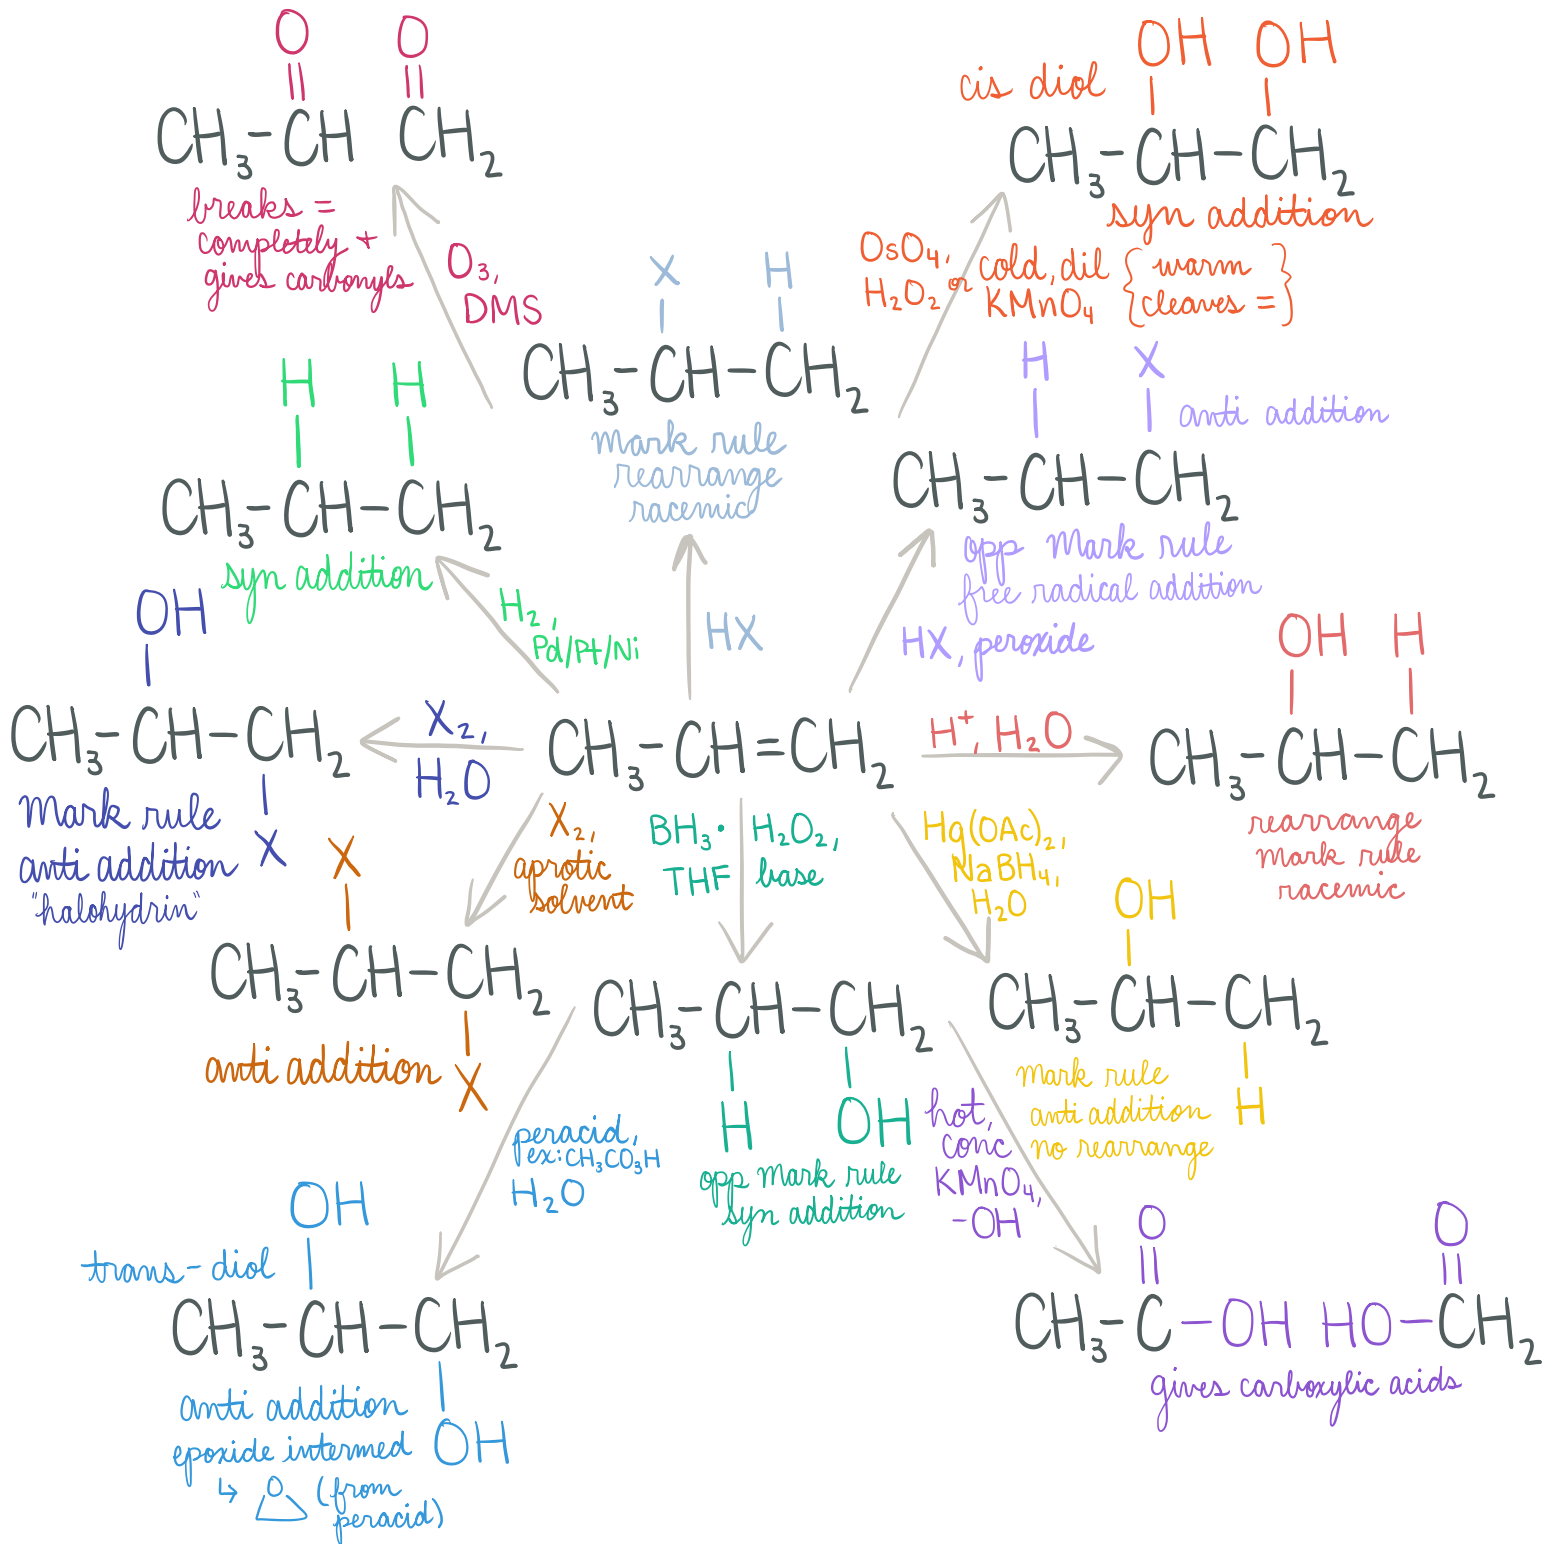 O O
CH₃-CH CH₂
breaks =
completely +
gives carbonyls
O₃,
DMS
OH OH
cis diol
CH₃-CH-CH₂
syn addition
OsO₄,
H₂O₂ or
cold, dil
KMnO₄
{warm
cleaves =}
X H
CH₃-CH-CH₂
mark rule
rearrange
racemic
HX
H X
anti addition
CH₃-CH-CH₂
opp Mark rule
free radical addition
HX, peroxide
H H
CH₃-CH-CH₂
syn addition
H₂,
Pd/Pt/Ni
OH
CH₃-CH-CH₂
X
Mark rule
anti addition
"halohydrin"
X₂,
H₂O
CH₃-CH=CH₂
H⁺, H₂O
OH H
CH₃-CH-CH₂
rearrange
mark rule
racemic
X₂,
aprotic
solvent
X
CH₃-CH-CH₂
X
anti addition
BH₃·
THF
H₂O₂,
base
CH₃-CH-CH₂
H OH
opp mark rule
syn addition
Hg(OAc)₂,
NaBH₄,
H₂O
OH
CH₃-CH-CH₂
H
mark rule
anti addition
no rearrange
peracid,
ex: CH₃CO₃H
H₂O
OH
trans-diol
CH₃-CH-CH₂
OH
anti addition
epoxide intermed
↳ O (from
peracid)
hot,
conc
KMnO₄,
-OH
O O
CH₃-C-OH HO-CH₂
gives carboxylic acids